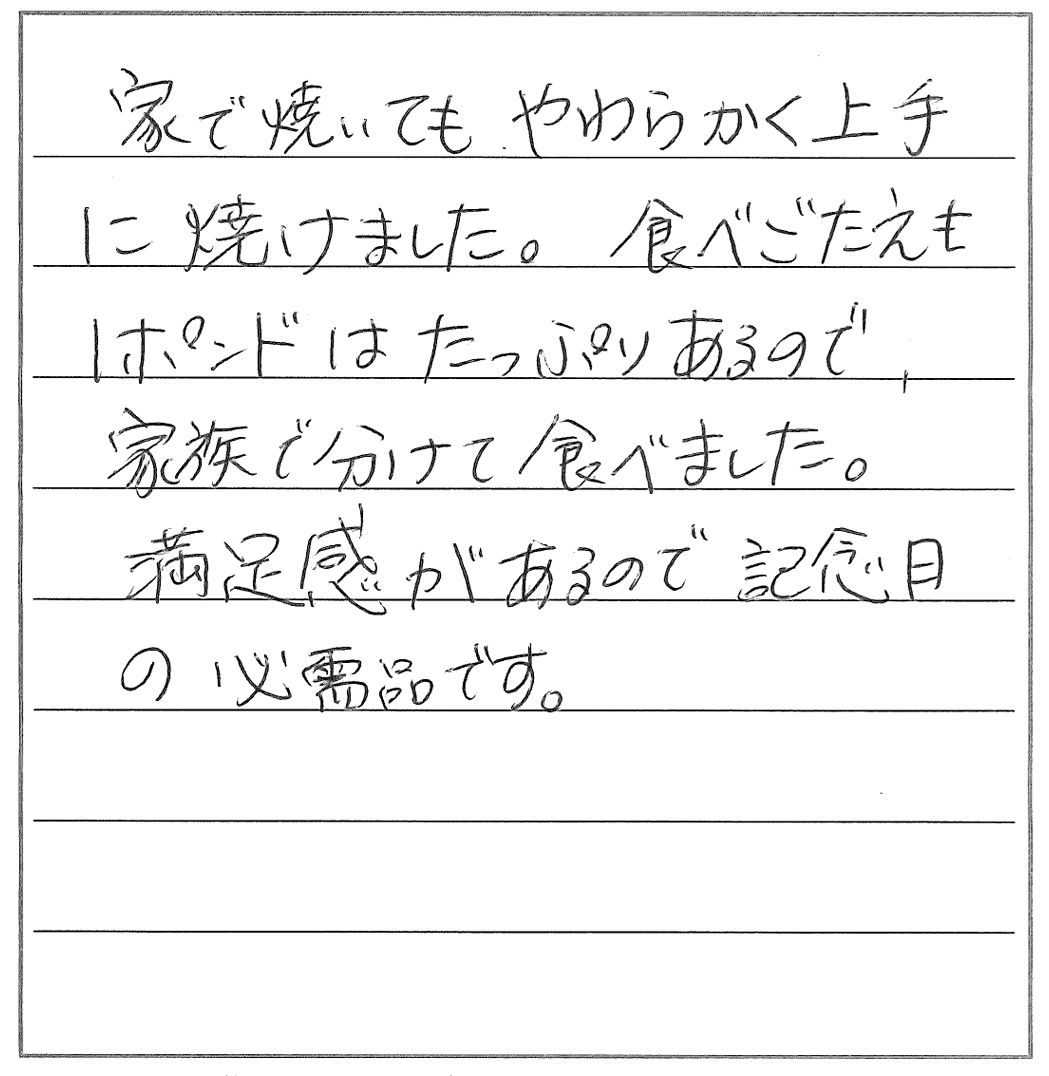 家で焼いても やわらかく上手
に焼けました。 食べごたえも
1ポンドは たっぷりあるので、
家族で分けて食べました。
満足感があるので 記念日
の必需品です。